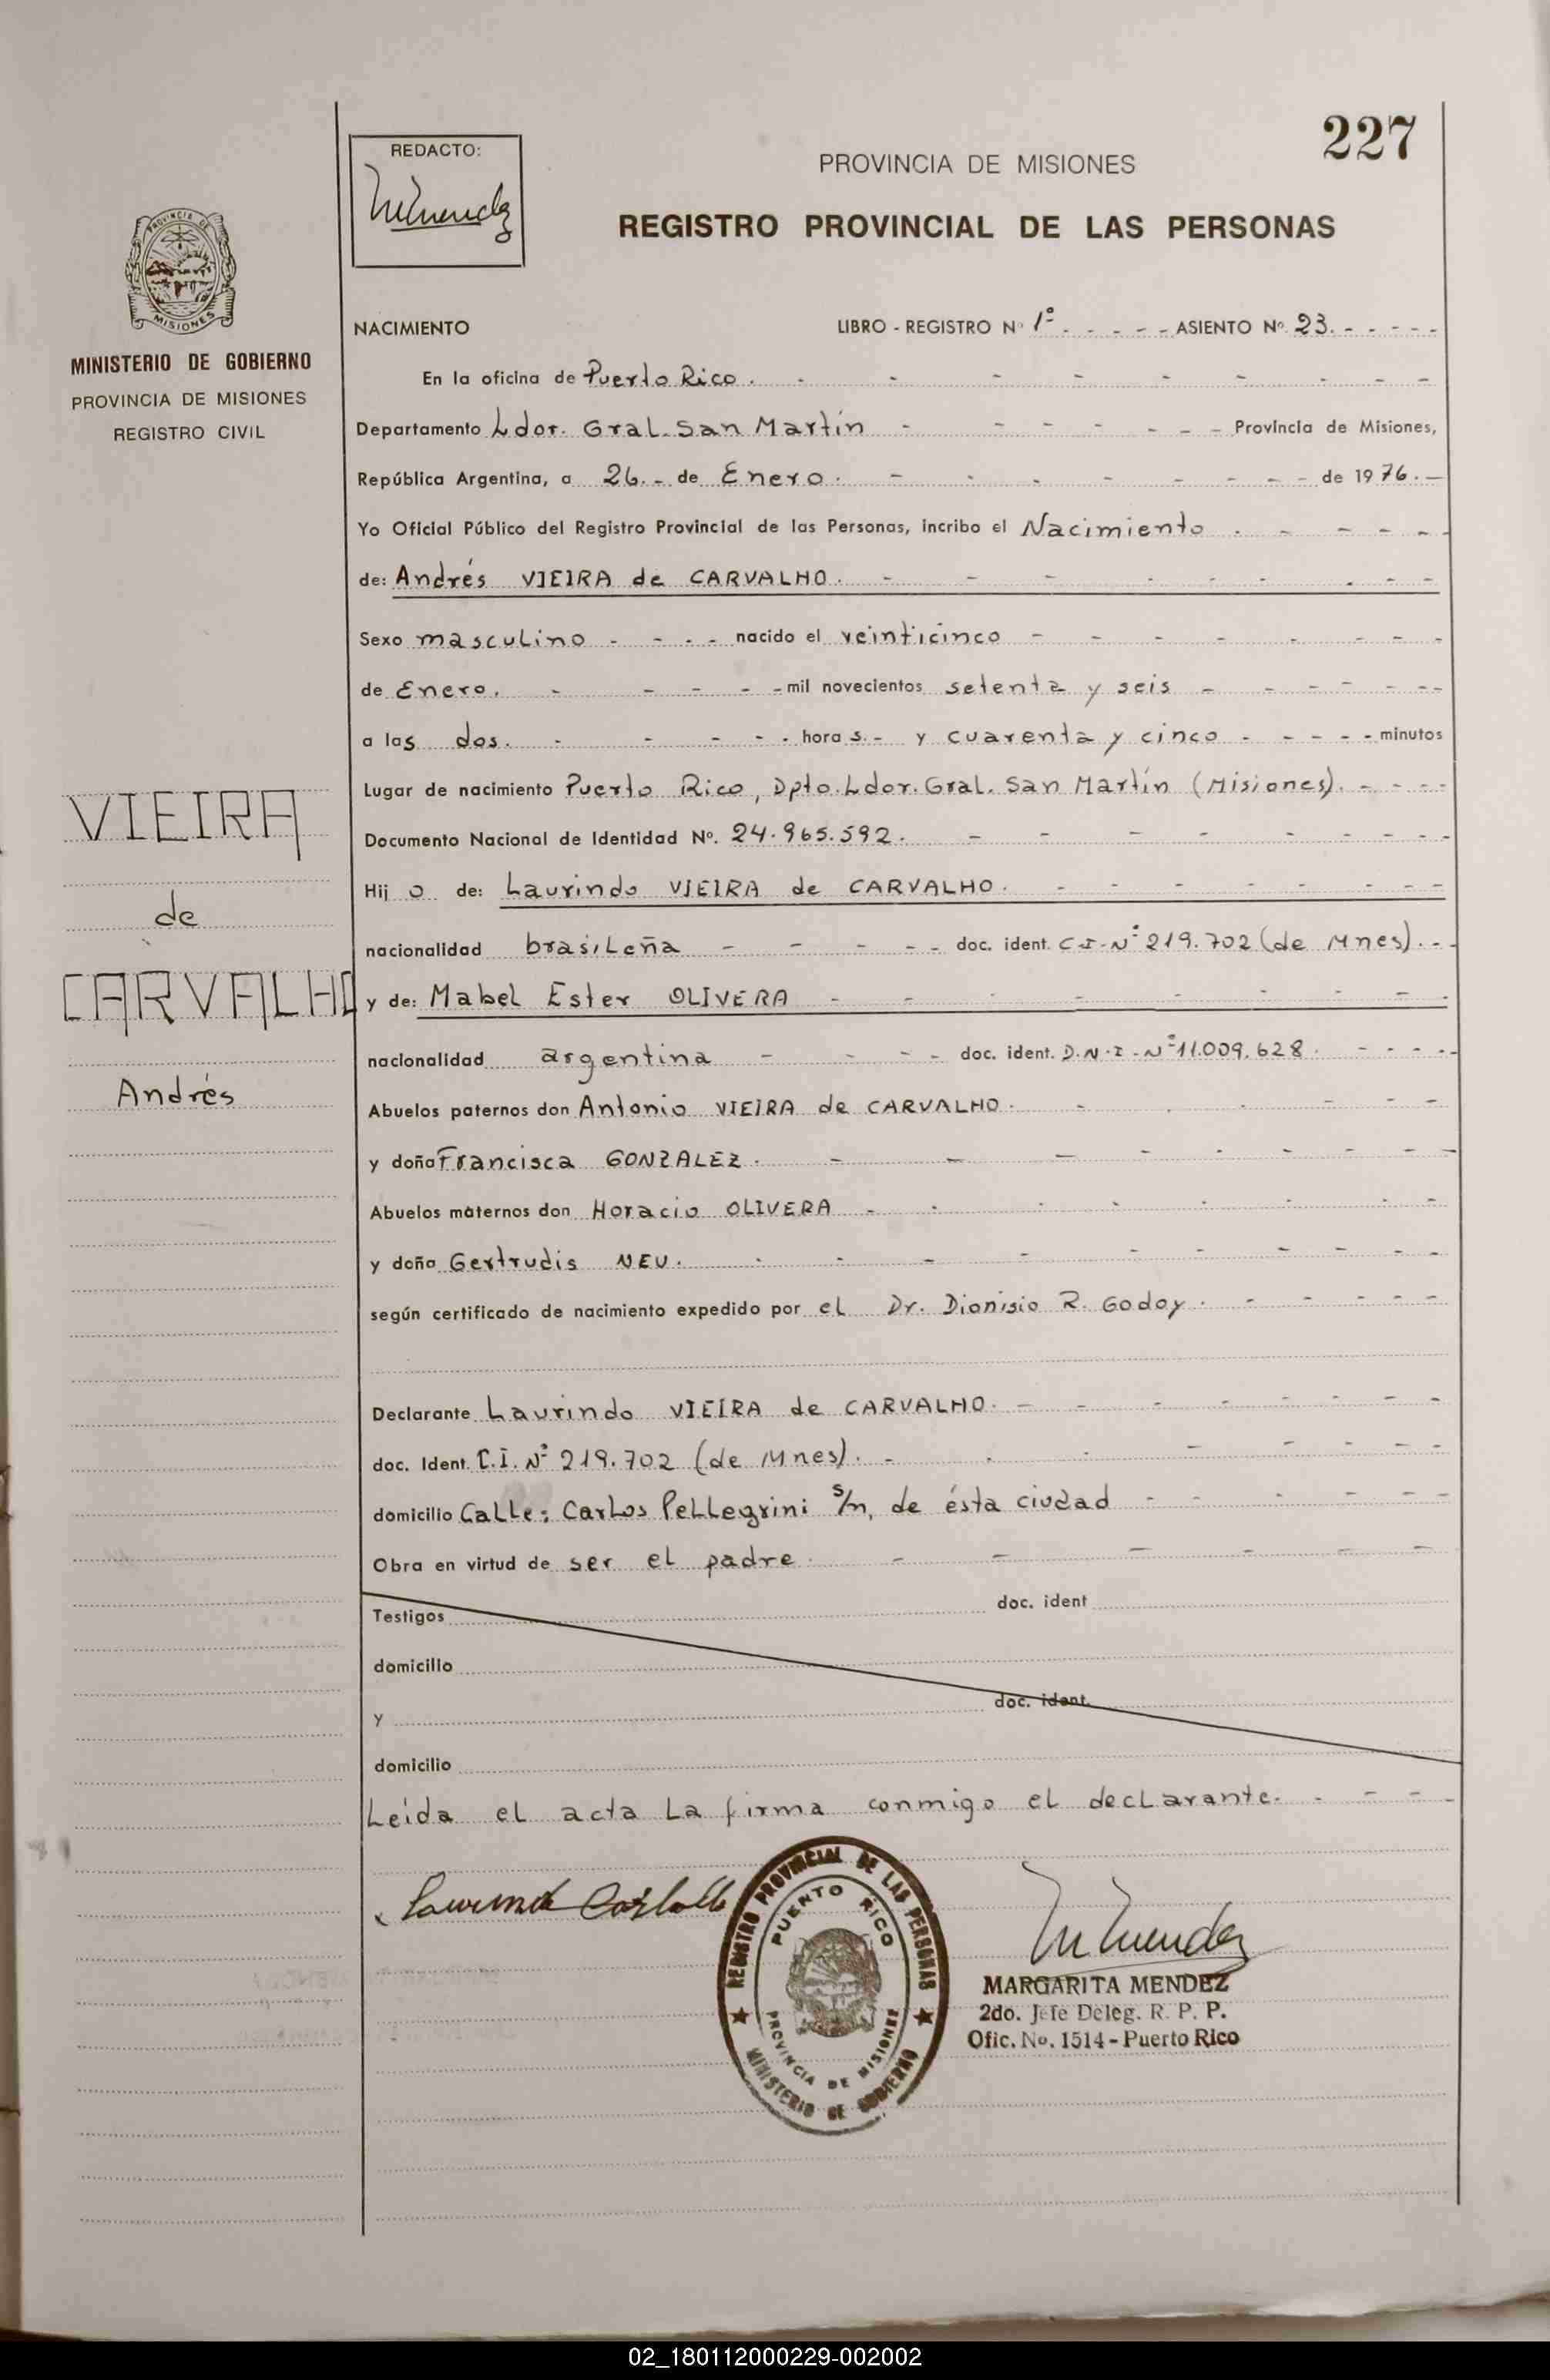 227
REDACTO:
PROVINCIA DE MISIONES
REGISTRO PROVINCIAL DE LAS PERSONAS
PROVINCIA DE
MISIONES
MINISTERIO DE GOBIERNO
PROVINCIA DE MISIONES
REGISTRO CIVIL
VIEIRA
de
CARVALHO
Andrés
NACIMIENTO LIBRO - REGISTRO Nº 1º - - - - - ASIENTO Nº 23. - - - - -
En la oficina de Puerto Rico. - - - - - - - - -
Departamento Ldor. Gral. San Martín - - - - - - - Provincia de Misiones,
República Argentina, a 26.- de Enero. - - - - - - - - de 1976.-
Yo Oficial Público del Registro Provincial de las Personas, incribo el Nacimiento - - - - -
de: Andrés VIEIRA de CARVALHO. - - - - - - - - -
Sexo masculino - - - - nacido el veinticinco - - - - - - - -
de Enero. - - - - - mil novecientos setenta y seis - - - - - - -
a las dos. - - - - - horas.- y cuarenta y cinco - - - - - minutos
Lugar de nacimiento Puerto Rico, Dpto. Ldor. Gral. San Martín (Misiones). - - - -
Documento Nacional de Identidad Nº. 24.965.592. - - - - - - - - -
Hijo de: Laurindo VIEIRA de CARVALHO. - - - - - - - -
nacionalidad brasiLeña - - - - - doc. ident. C.I-Nº 219.702 (de Mnes). - -
y de: Mabel Ester OLIVERA - - - - - - - -
nacionalidad argentina - - - - doc. ident. D.N.I-Nº 11.009.628. - - - - -
Abuelos paternos don Antonio VIEIRA de CARVALHO. - - - - - -
y doña Francisca GONZALEZ. - - - - - - - - -
Abuelos maternos don Horacio OLIVERA - - - - - - - -
y doña Gertrudis NEU. - - - - - - - - - -
según certificado de nacimiento expedido por el Dr. Dionisio R. Godoy. - - - - -
Declarante Laurindo VIEIRA de CARVALHO. - - - - - - - -
doc. Ident. C.I. Nº 219.702 (de Mnes). - - - - - - - -
domicilio Calle: Carlos Pellegrini s/n, de ésta ciudad - - - - - -
Obra en virtud de ser el padre. - - - - - -
Testigos doc. ident
domicilio
y doc. ident.
domicilio
Leída el acta La firma conmigo el declarante. - - - -
REGISTRO PROVINCIAL DE LAS PERSONAS
PUERTO RICO
PROVINCIA DE MISIONES
MINISTERIO DE GOBIERNO
MARGARITA MENDEZ
2do. Jefe Deleg. R. P. P.
Ofic. No. 1514 - Puerto Rico
02_180112000229-002002